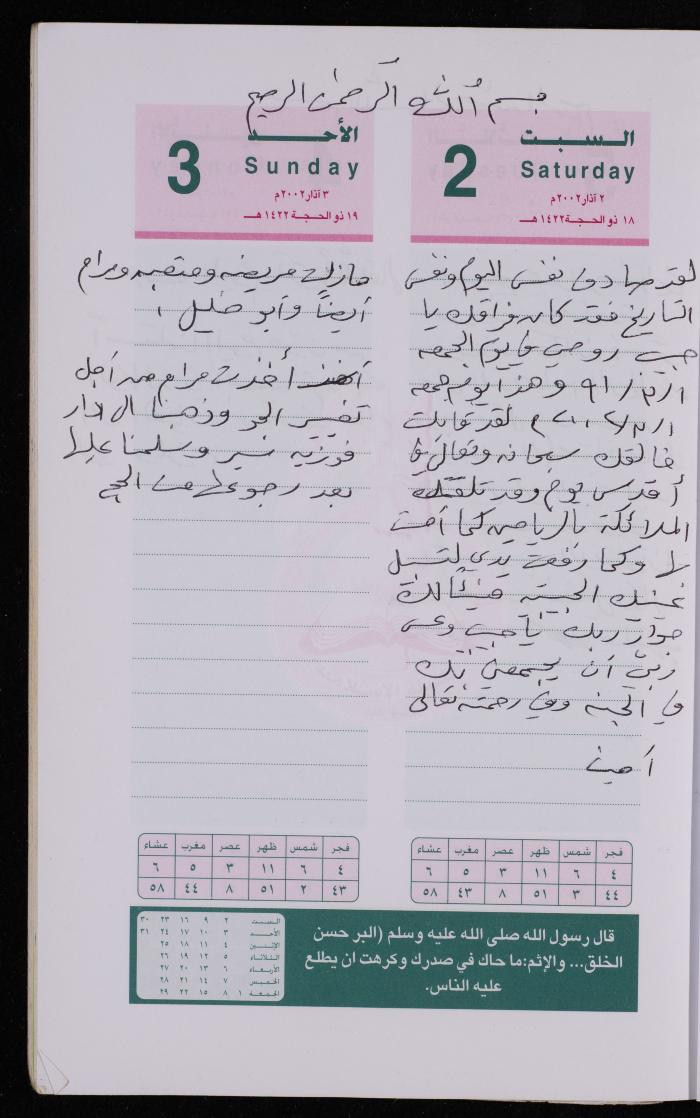 بسم الله الرحمن الرحيم
السبت
2
Saturday
٢ آذار ٢٠٠٢م
١٨ ذو الحجة ١٤٢٢هـ
لقد صادف نفس اليوم ونفس
التاريخ فقد كان فراقك يا
حبيب روحي في يوم الجمعه
١/٣/٩١ وهذا يوم جمعه
١/٣/٢٠٠٢م لقد قابلت
خالقك سبحانه وتعالى في
أقدس يوم وقد تلقتك
الملائكة بالرياحين كما
لا وكما رفعت يدي لتسبل
عينيك الحبيبه فهنيئاً لك
جوار ربك يا حبيب وعسى
ربي أن يجمعني بك
في الجنه وفي رحمته تعالى
آمين
الأحد
3
Sunday
٣ آذار ٢٠٠٢م
١٩ ذو الحجة ١٤٢٢هـ
مازلت مريضه ومتعبه ومرام
أيضاً وأبو خليل
أخذت مرام من أجل
تغيير الجو وذهبنا الى دار
فوزيه وسلمنا عليها
بعد رجوعها من الحج
فجر شمس ظهر عصر مغرب عشاء
٤ ٦ ١١ ٣ ٥ ٦
٤٤ ٣ ٥١ ٨ ٤٣ ٥٨
فجر شمس ظهر عصر مغرب عشاء
٤ ٦ ١١ ٣ ٥ ٦
٤٣ ٢ ٥١ ٨ ٤٤ ٥٨
قال رسول الله صلى الله عليه وسلم (البر حسن
الخلق... والإثم:ما حاك في صدرك وكرهت ان يطلع
عليه الناس.
السبت ٢ ٩ ١٦ ٢٣ ٣٠
الأحد ٣ ١٠ ١٧ ٢٤ ٣١
الإثنين ٤ ١١ ١٨ ٢٥
الثلاثاء ٥ ١٢ ١٩ ٢٦
الأربعاء ٦ ١٣ ٢٠ ٢٧
الخميس ٧ ١٤ ٢١ ٢٨
الجمعة ١ ٨ ١٥ ٢٢ ٢٩